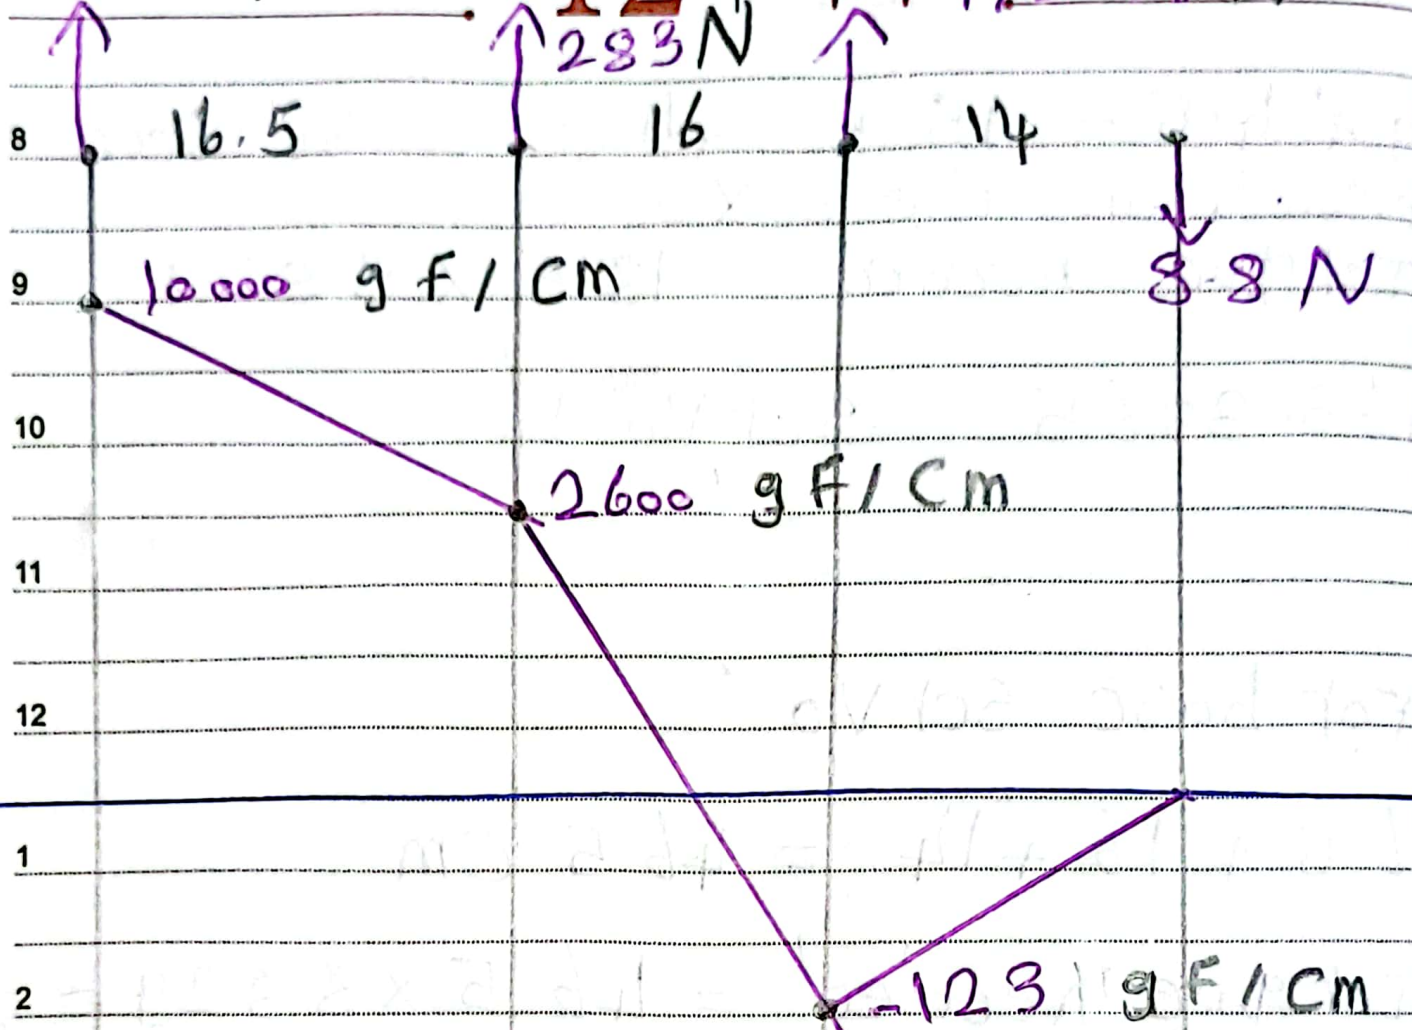 283 N
8 16.5 16 14
9 10000 gF/Cm 8.8 N
10
2600 gF/Cm
11
12
1
-123 gF/Cm
2